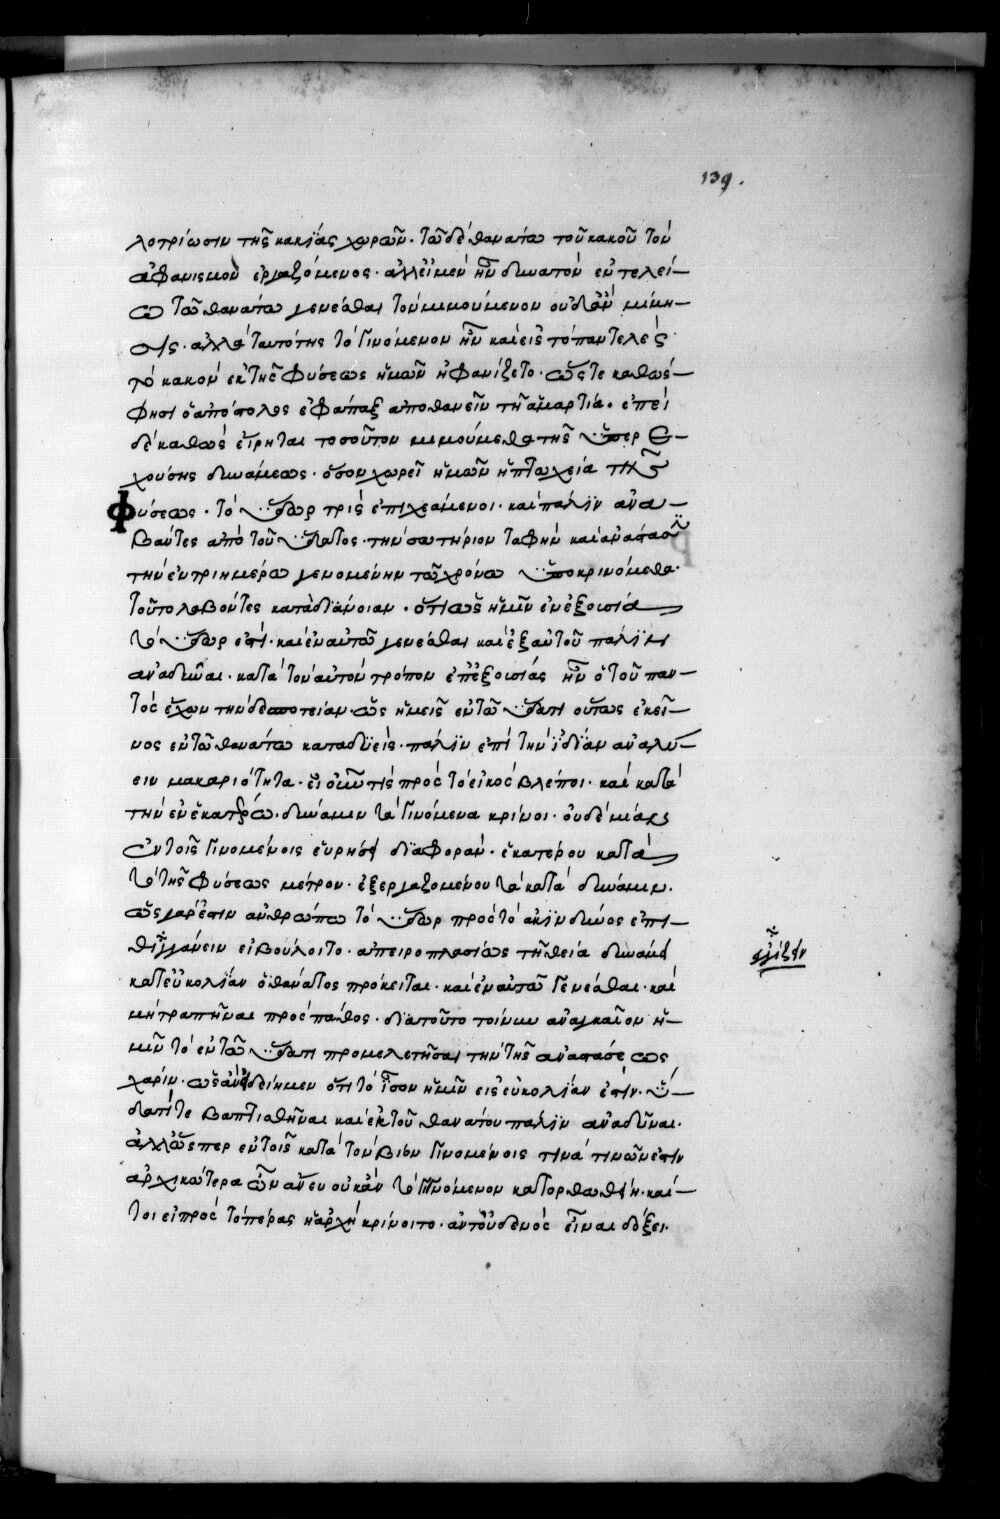 139.
λοτρίωσιν τῆς κακίας χωρῶν. τῶ δὲ θανάτω τοῦ κακοῦ τὸν
ἀφανισμὸν ἐργαζόμενος. ἀλλ εἰ μὲν ἦν δυνατὸν ἐν τελεί–
ω τῶ θανάτω γενέσθαι τὸν μιμούμενον οὐδ ἂν μίμη–
σις. ἀλλὰ ταυτότης τὸ γινόμενον ἦν καὶ εἰς τὸ παντελὲς
τὸ κακὸν ἐκ τῆς φύσεως ἡμῶν ἠφανίζετο. ὥς τε καθώς–
φησι ὁ ἀπόστολος ἐφάπαξ ἀποθανεῖν τῆ ἁμαρτία. ἐπεὶ
δὲ καθὼς εἴρηται τοσοῦτον μιμούμεθα τῆς ὑπερ ε–
χούσης δυνάμεως. ὅσον χωρεῖ ἡμῶν ἡ πτωχεία τῆς
φύσεως. τὸ ὕδωρ τρὶς ἐπιχεάμενοι. καὶ πάλϊν ἀνα–
βάντες ἀπὸ τοῦ ὕδατος. τὴν σωτήριον ταφὴν καὶ ἀνάστασϊν
τὴν ἐν τριημέρω γενομένην τῶ χρόνω ὑποκρινόμεθα.
τοῦτο λαβόντες κατὰ διάνοιαν. ὅτι ὡς ἡμῖν ἐν ἐξουσία
τὸ ὕδωρ ἐστὶ. καὶ ἐν αὐτῶ γενέσθαι καὶ ἐξ αὐτοῦ πάλϊν
ἀναδῦναι. κατὰ τὸν αὐτὸν τρόπον ἐπ ἐξουσίας ἦν ὁ τοῦ παν–
τὸς ἔχων τὴν δεσποτείαν. ὡς ἡμεῖς ἐν τῶ ὕδατι οὕτως ἐκεῖ–
νος ἐν τῶ θανάτω καταδϋεὶς. πάλϊν ἐπὶ τὴν ϊδϊαν ἀναλύ–
ειν μακαριότητα. εἰ οὖν τὶς πρὸς τὸ εἰκὸς βλέποι. καὶ κατὰ
τὴν ἐν ἑκατέρω. δύναμιν τὰ γινόμενα κρίνοι. οὐδεμίαν
ἐν τοῖς γινομένοις εὑρήσει δϊαφορὰν. ἑκατέρου κατὰ
τὸ τῆς φύσεως μέτρον. ἐξεργαζομένου τὰ κατὰ δύναμιν.
ὡς γὰρ ἔστιν ἀνθρώπω τὸ ὕδωρ πρὸς τὸ ἀκϊνδύνως ἐπι–
θϊγγάνειν εἰ βούλοιτο. ἀπειροπλασίως τῆ θεία δυνάμει
κατ εὐκολίαν ὁ θάνατος πρόκειται. καὶ ἐν αὐτῶ γενέσθαι. καὶ
μὴ τραπῆναι πρὸς πάθος. διατοῦτο τοίνυν ἀναγκαῖον ἡ–
μῖν τὸ ἐν τῶ ὕδατι προμελετῆσαι τὴν τῆς ἀναστάσεως
χάριν. ὡς ἂν εἰδείημεν ὅτι τὸ ἴσον ἡμῖν εἰς εὐκολίαν ἐστιν. ὕ–
δατί τε βαπτισθῆναι καὶ ἐκ τοῦ θανάτου πάλϊν ἀναδῦναι.
ἀλλ ὥσπερ ἐν τοῖς κατὰ τὸν βίον γινομένοις τινά τινων ἐστιν
ἀρχικώτερα ὧν ἄνευ οὐκ ἂν τὸ γινόμενον κατορθωθείη. καί–
τοι εἰ πρὸς τὸ πέρας ἡ ἀρχὴ κρίνοιτο. ἀντ οὐδενὸς εἶναι δόξει.